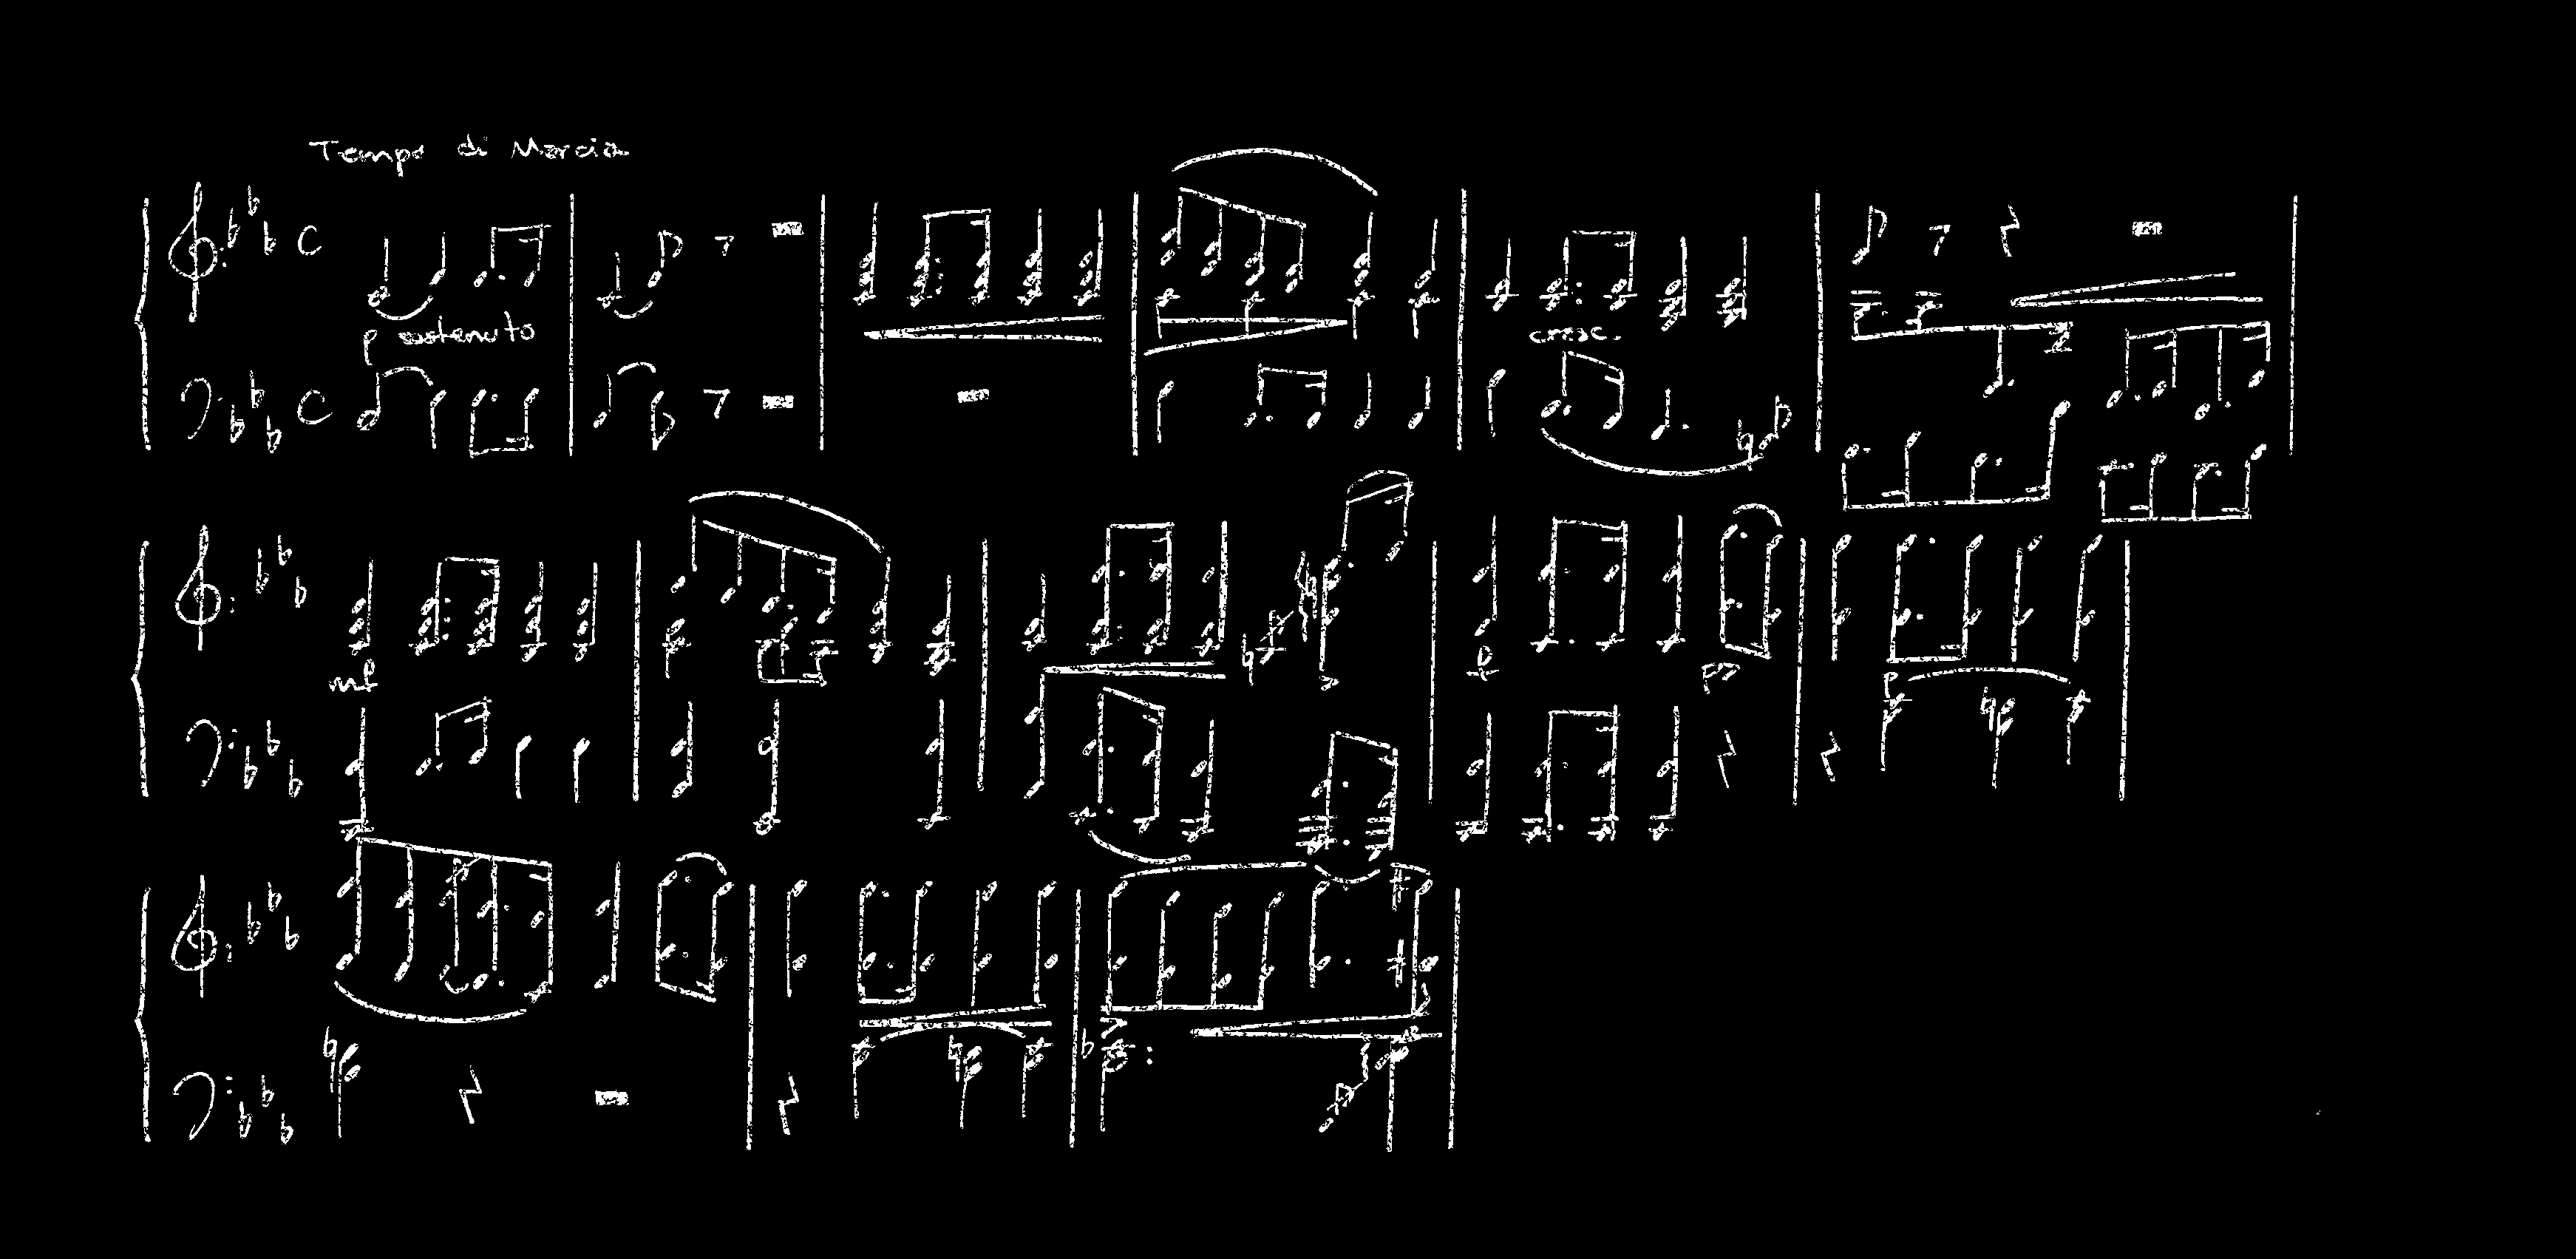 Tempo di Marcia
p sostenuto
cresc.
mf
pp